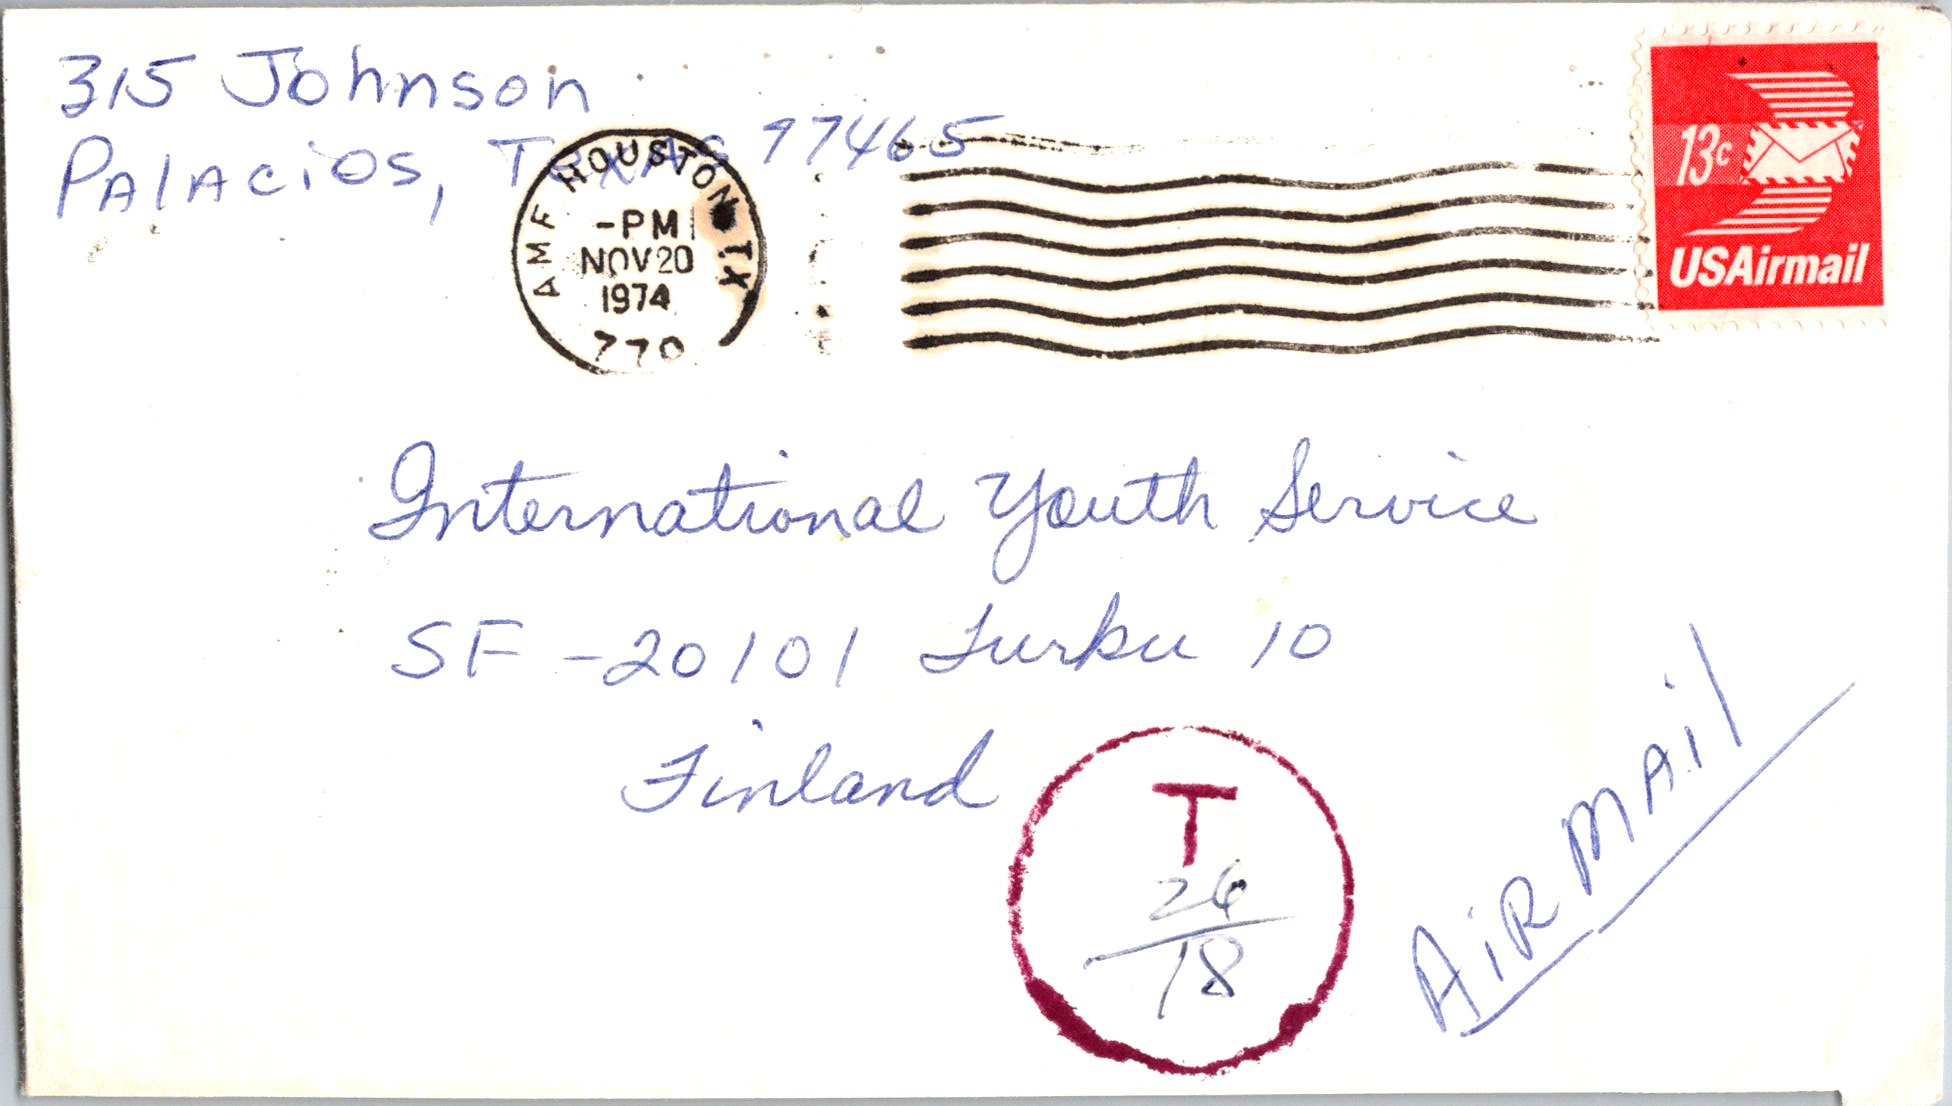 315 Johnson
Palacios, Texas 77465
AMF HOUSTON TX
-PM
NOV 20
1974
770
13c
USAirmail
International Youth Service
SF-20101 Turku 10
Finland
T
26
18
AIRMAIL